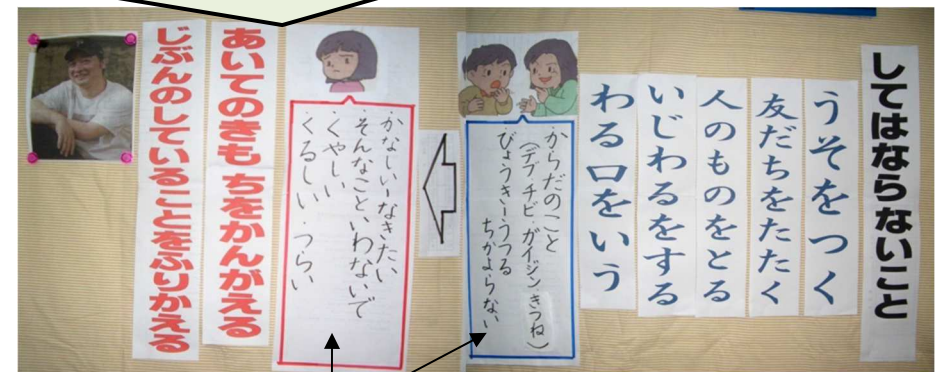 してはならないこと
うそをつく
友だちをたたく
人のものをとる
いじわるをする
わる口をいう
からだのこと
(デブ チビ ガイジン きつね)
びょうき→うつる
ちかよらない
かなしい・なきたい
そんなこと、いわないで
くやしい
くるしい・つらい
あいてのきもちをかんがえる
じぶんのしていることをふりかえる